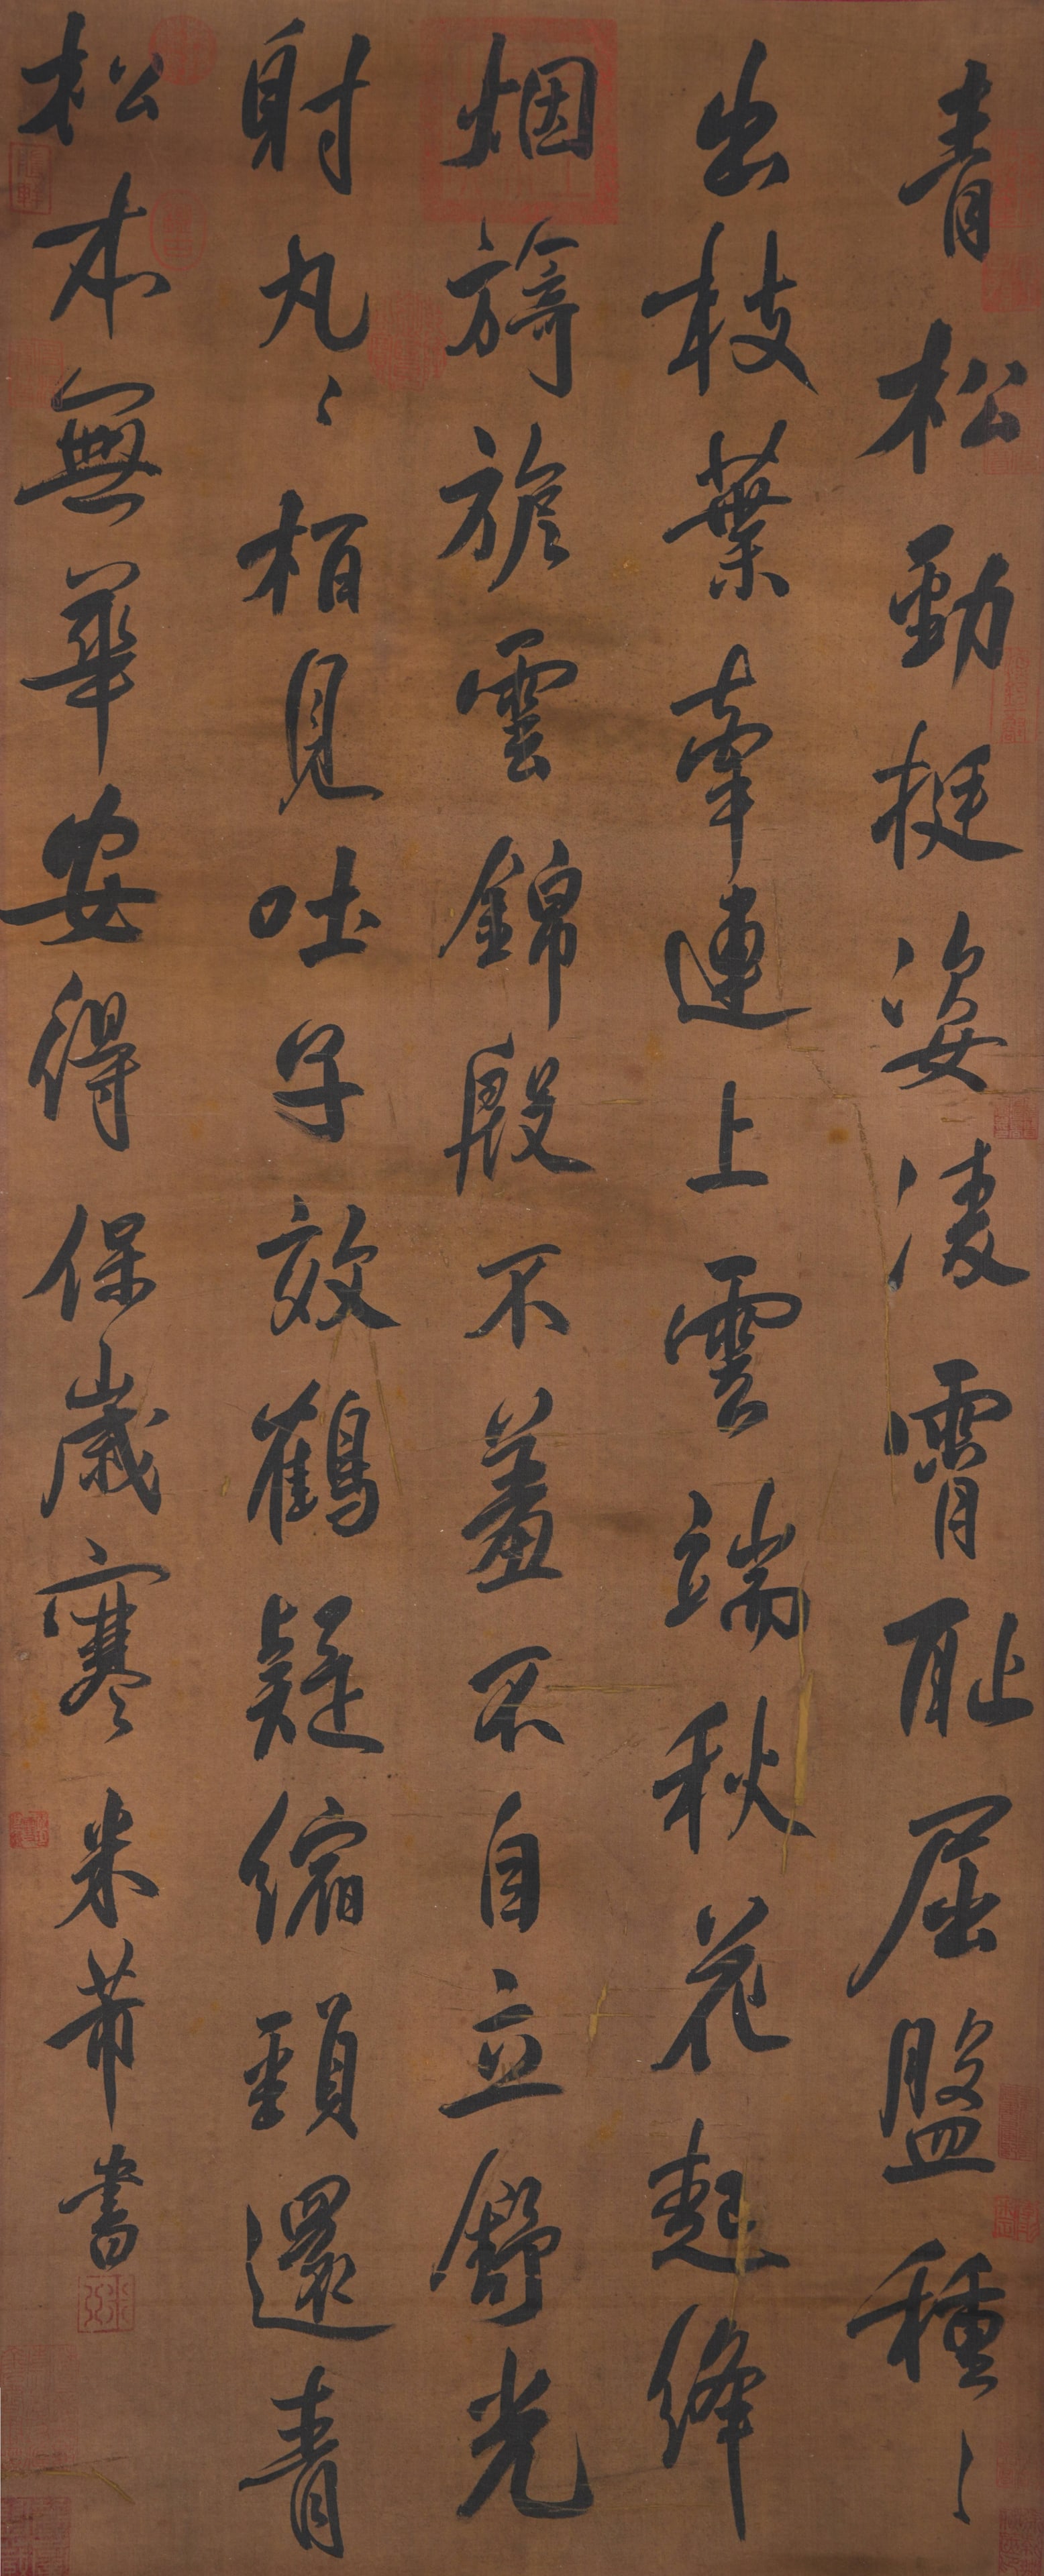 青松勁挺姿凌霄恥屈盤種〻
出枝葉牽連上雲端秋花起絳
烟旖旎雲錦殷不羞不自立舒光
射丸〻栢見吐子效鶴疑縮頸還青
松本無華安得保歲寒米芾書